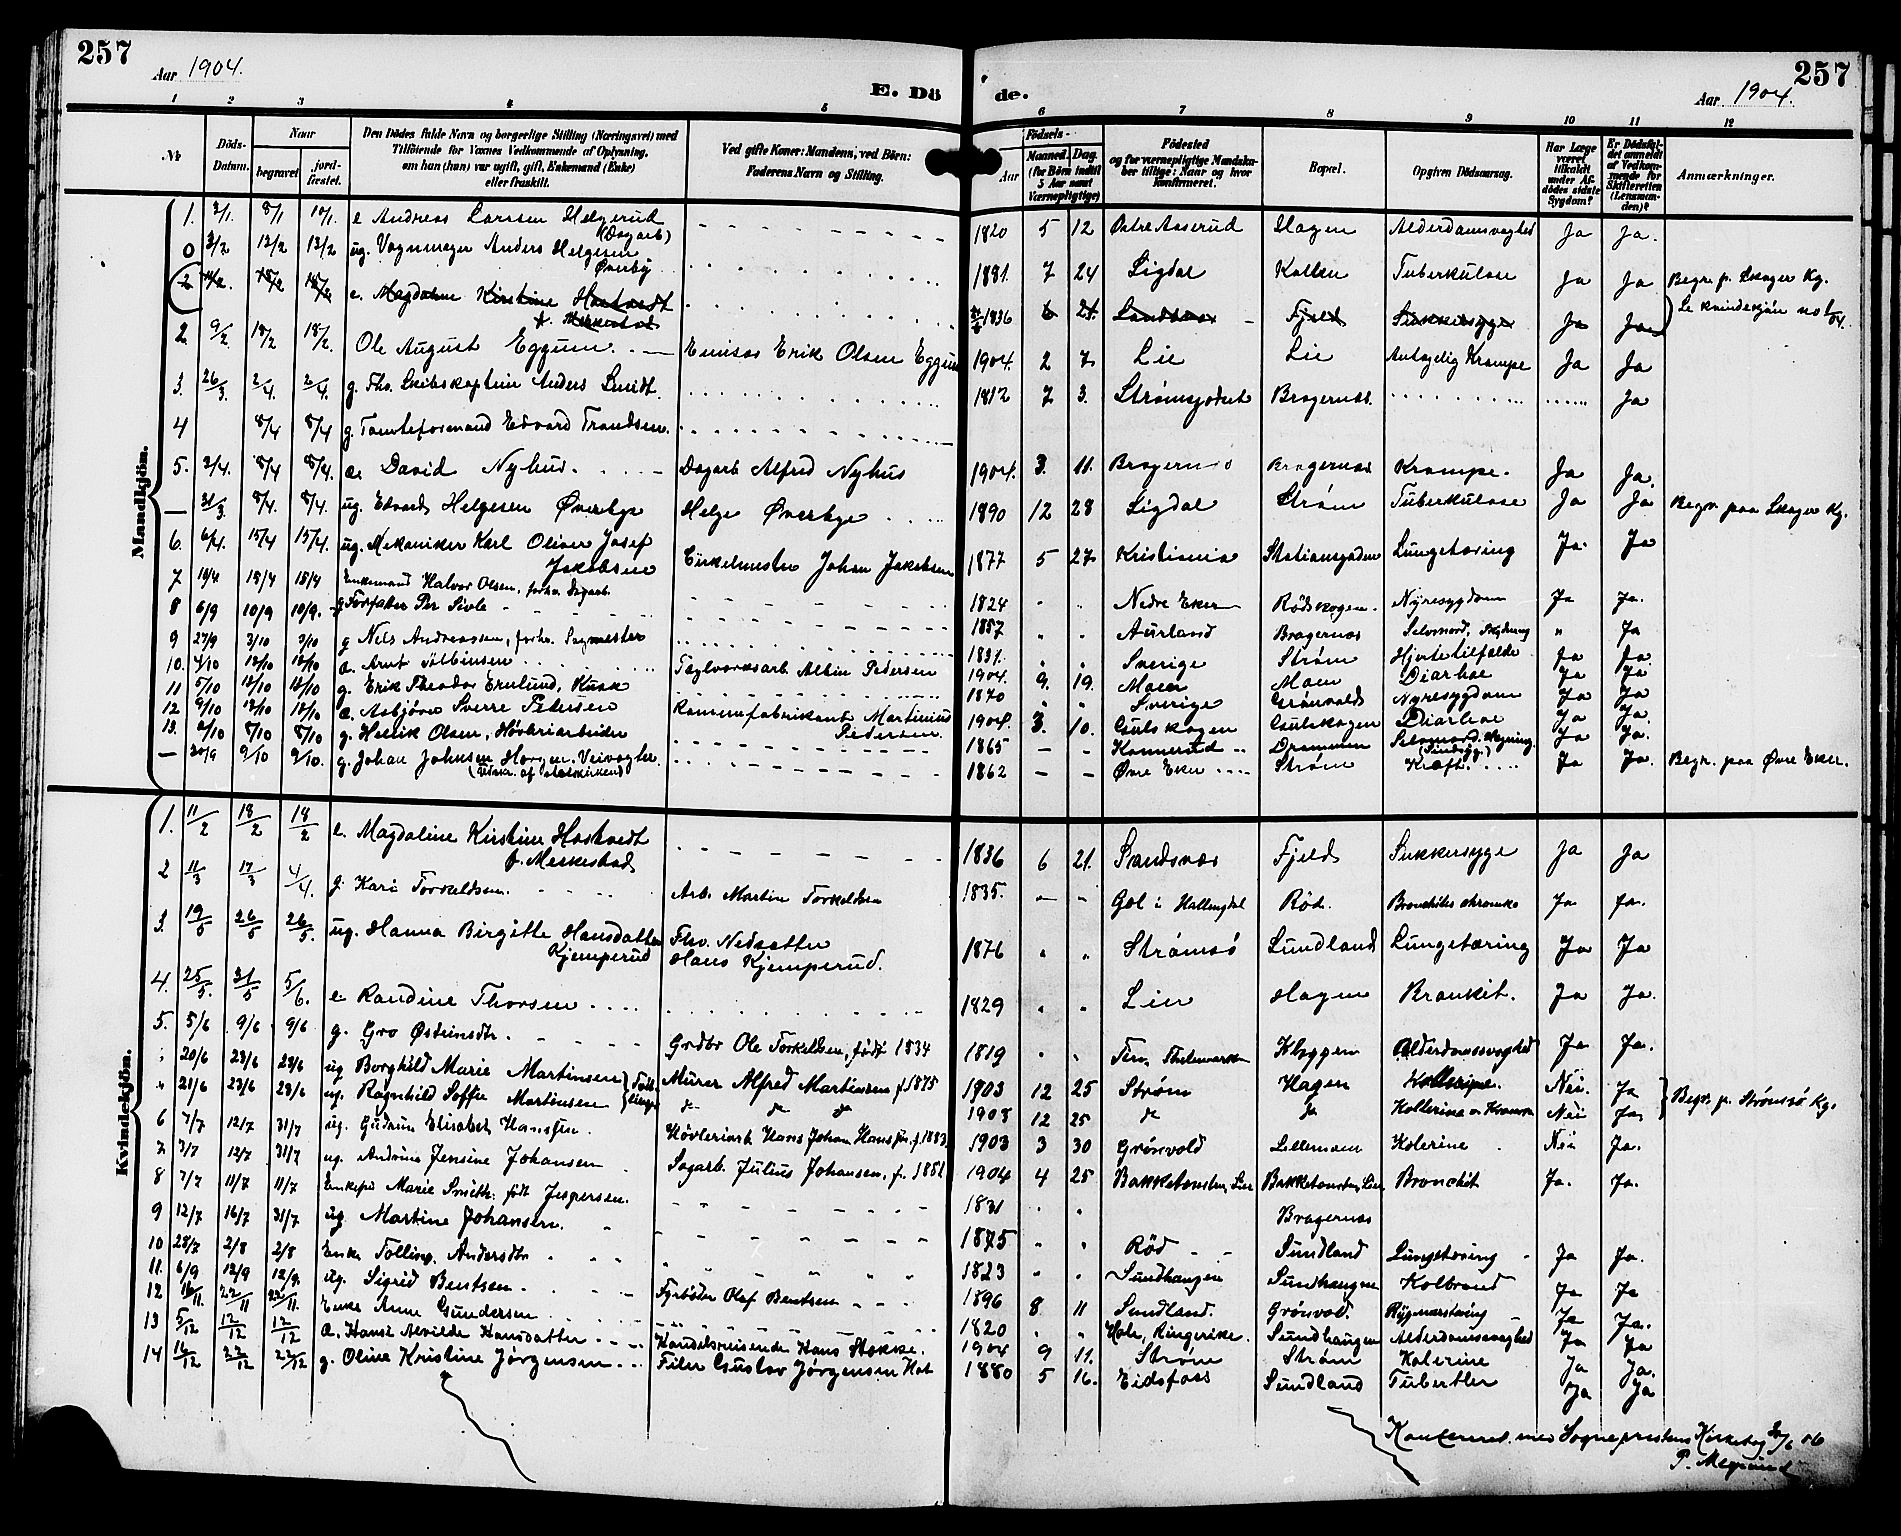 257 Aar 1904. E. Dö de. Aar 1904. 257
1 2 3 4 5 6 7 8 9 10 11 12
Nr. Döds-Datum. Naar begravet jordfæstet. Den Dödes fulde Navn og borgerlige Stilling (Næringsvei) med Tilföiende for Voxnes Vedkommende af Oplysning, om han (hun) var ugift, gift, Enkemand (Enke) eller fraskilt. Ved gifte Koner: Mandens, ved Börn: Faderens Navn og Stilling. Födsels- Aar Maaned. Dag. (for Börn indtil 5 Aar samt Værnepligtige) Födested og for værnepligtige Mandskaber tillige: Naar og hvor konfirmeret. Bopæl. Opgiven Dödsaarsag. Har Læge været tilkaldt under Afdödes sidste Sygdom? Er Dödsfaldet anmeldt af Vedkommende for Skifteretten (Lensmanden)? Anmærkninger.
Mandkjön.
1. 3/1. 8/1 10/1. e Andreas Larsen Helgerud (Dagarb) 1820 5 12 Østre Aaserud Hagen Alderdomsvaghed Ja Ja.
0 3/2 13/2 13/2 ug. Vognmager Anders Helgesen Øverby 1881. 7 24 Sigdal Kolken Tuberkulose Ja Ja Begr. p. Skoger Kg.
2 11/2. 18/2 18/2 e. Magdaline Kirstine Hostvedt f. Merkestad 1836 6 21. Sandsvær Fjeld Sukkersyge Ja Ja Se kvindekjön no 1/04.
2 9/2 18/2 18/2. Ole August Eggum. Emissær Erik Olsen Eggum 1904. 2 7 Lie Lie Antagelig Krampe Ja Ja
3. 26/3. 2/4. 2/4. g. Fhv. Skibskaptein Anders Smidt. 1812 7 3. Strømsgodset Bragernæs. Ja
4 8/4 8/4 g. Tomteformand Edvard Trondsen.
5. 3/4. 8/4 8/4. David Nyhus. Dagarb Alfred Nyhus 1904. 3. 11. Bragernæs Bragernæs Krampe. Ja Ja.
— 31/3 8/4. 8/4. ug. Edvard Helgesen Øverbye Helge Øverbye 1890 12 28 Sigdal Strøm Tuberkulose Ja Ja Begr. paa Skoger Kg.
6. 6/4. 15/4 15/4. ug. Mekaniker Karl Oliver Josef Jakobsen Cirkelmester Johan Jakobsen 1877 5 27 Kristiania Stationsgaden Lungetæring Ja. Ja
7 18/4 18/4 Enkemand Halvor Olsen, forhv. Dagarb. 1824 Nedre Eker Rødskogen. Nyresygdom Ja Ja.
8 6/9 10/9 10/9. g Forfatter Per Sivle 1857 Aurland Bragernæs Selvmord, Skydning " Ja
9 27/9 3/10 3/10 g Nels Andreassen, forhv. Sagmester 1831. Sverige Strøm Hjertetilfælde Ja Ja.
10. 4/10 12/10 12/10 Arnt Tølbinsen Teglværksarb Albin Pedersen 1904. 9. 19. Moen Moen Diarhoe Ja Ja.
11 5/10 12/10 12/10 g. Erik Theodor Ernlund, Kusk 1870 Sverige Grønvold Nyresygdom Ja Ja
12 9/10 12/10 12/10 Asbjørn Sverre Petersen fabrikant Martinius Pedersen. 1904. 3. 10. Gulskogen Gulskogen Diarhoe Ja Ja.
13. 2/10 8/10 8/10 g. Henrik Olsen, Høvleriarbeider 1865 — — Konnerud Drammen Selvmord. Hegning. (Sindsyg.) Ja Ja.
— 30/9 9/10 9/10. g. Johan Johnsen Horgen. Veivogter (Utskr. af statskirken) 1862 — — Øvre Eker Strøm Kræft. Ja Ja. Begr. paa Øvre Eker.
Kvindekjön.
1. 11/2 18/2 18/2 e. Magdaline Kirstine Hostvedt f. Merkestad 1836 6 21. Sandsvær Fjeld Sukkersyge Ja Ja
2 11/3 17/3 4/4. g. Kari Torkeldsen. Arb. Martin Torkeldsen 1835. Gol i Hallingdal Rød. Bronchitis chronica Ja Ja.
3. 19/5 26/5 26/5. ug. Hanna Birgitte Hansdatter Kjemperud Fhv. Nedsætter Hans Kjemperud. 1876 Strømsø Sundland Lungetæring Ja Ja
4. 25/5. 31/5 5/6. e Randine Thorsen 1829 Lier Hagen Bronkit. Ja Ja.
5. 5/6 9/6 9/6 g. Gro Østensdtr. Grdbr Ole Torkeldsen, født 1834 1819 Tinn, Thelemarken Kloppen Alderdomssvaghed Ja Ja.
" 20/6 23/6 23/6 ug Borghild Marie Martinsen } Tvillinger Murer Alfred Martinsen f. 1875 1903 12 25 Strøm Hagen Kolerine. Nei. Ja } Begr. p. Strømsø Kg.
" 21/6 23/6 23/6 ug. Ragnhild Soffie Martinsen do do do 1903 12 25 do do Kollerina o. Krampe Nei Ja.
6 7/7 12/7 31/7 ug. Gudrun Elisabet Hansen. Høvleriarb. Hans Johan Hansen f. 1883 1903 3 30 Grønvold Lillemoen Kolerine Nei Ja.
7 3/7 12/7 31/7 ug. Andrine Jensine Johansen Sagarb. Julius Johansen, f. 1881 1904 4 25 Bakketomten, Lier Bakketomten, Lier Bronchit Ja. Ja.
8 7/7 11/7 11/7 Enkefru Marie Smith. født Jespersen. 1831 Bragernæs
9 12/7 16/7 31/7 ug. Martine Johansen. 1875 Rød Sundland Lungetæring Ja Ja.
10 28/7 2/8 2/8 Enke Tolline Andersdtr 1823 Sundhaugen Sundhaugen Kolbrand Ja Ja
11. 6/9 12/9 12/9. ug. Sigrid Bentsen. Fyrbøder Olaf Bentsen 1896 8 11 Sundland. Grønvold. Rygmarstæring Ja Ja.
12 16/11. 22/11 22/11. Enke Anne Gundersen 1820 Hole, Ringerike. Sundhaugen Alderdomssvaghed Ja Ja
13 5/12 12/12 12/12 Hansi Alvilde Hansdatter Handelsreisende Hans Stokke. 1904 9 11. Strøm Strøm Kolerine Ja Ja.
14 16/12 22/12 22/12 g. Oline Kristine Jørgensen Filer Gustav Jørgensen Hol 1880 5 16. Eidsfoss Sundland Tuberkler Ja Ja
Konfereret med Sogneprestens Kirkebog 30/6 06
P.